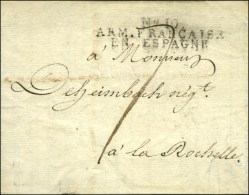 No. 10
ARM. FRANÇAISE
EN ESPAGNE
7
à Monsieur
Desheimbach négt.
à la Rochelle.